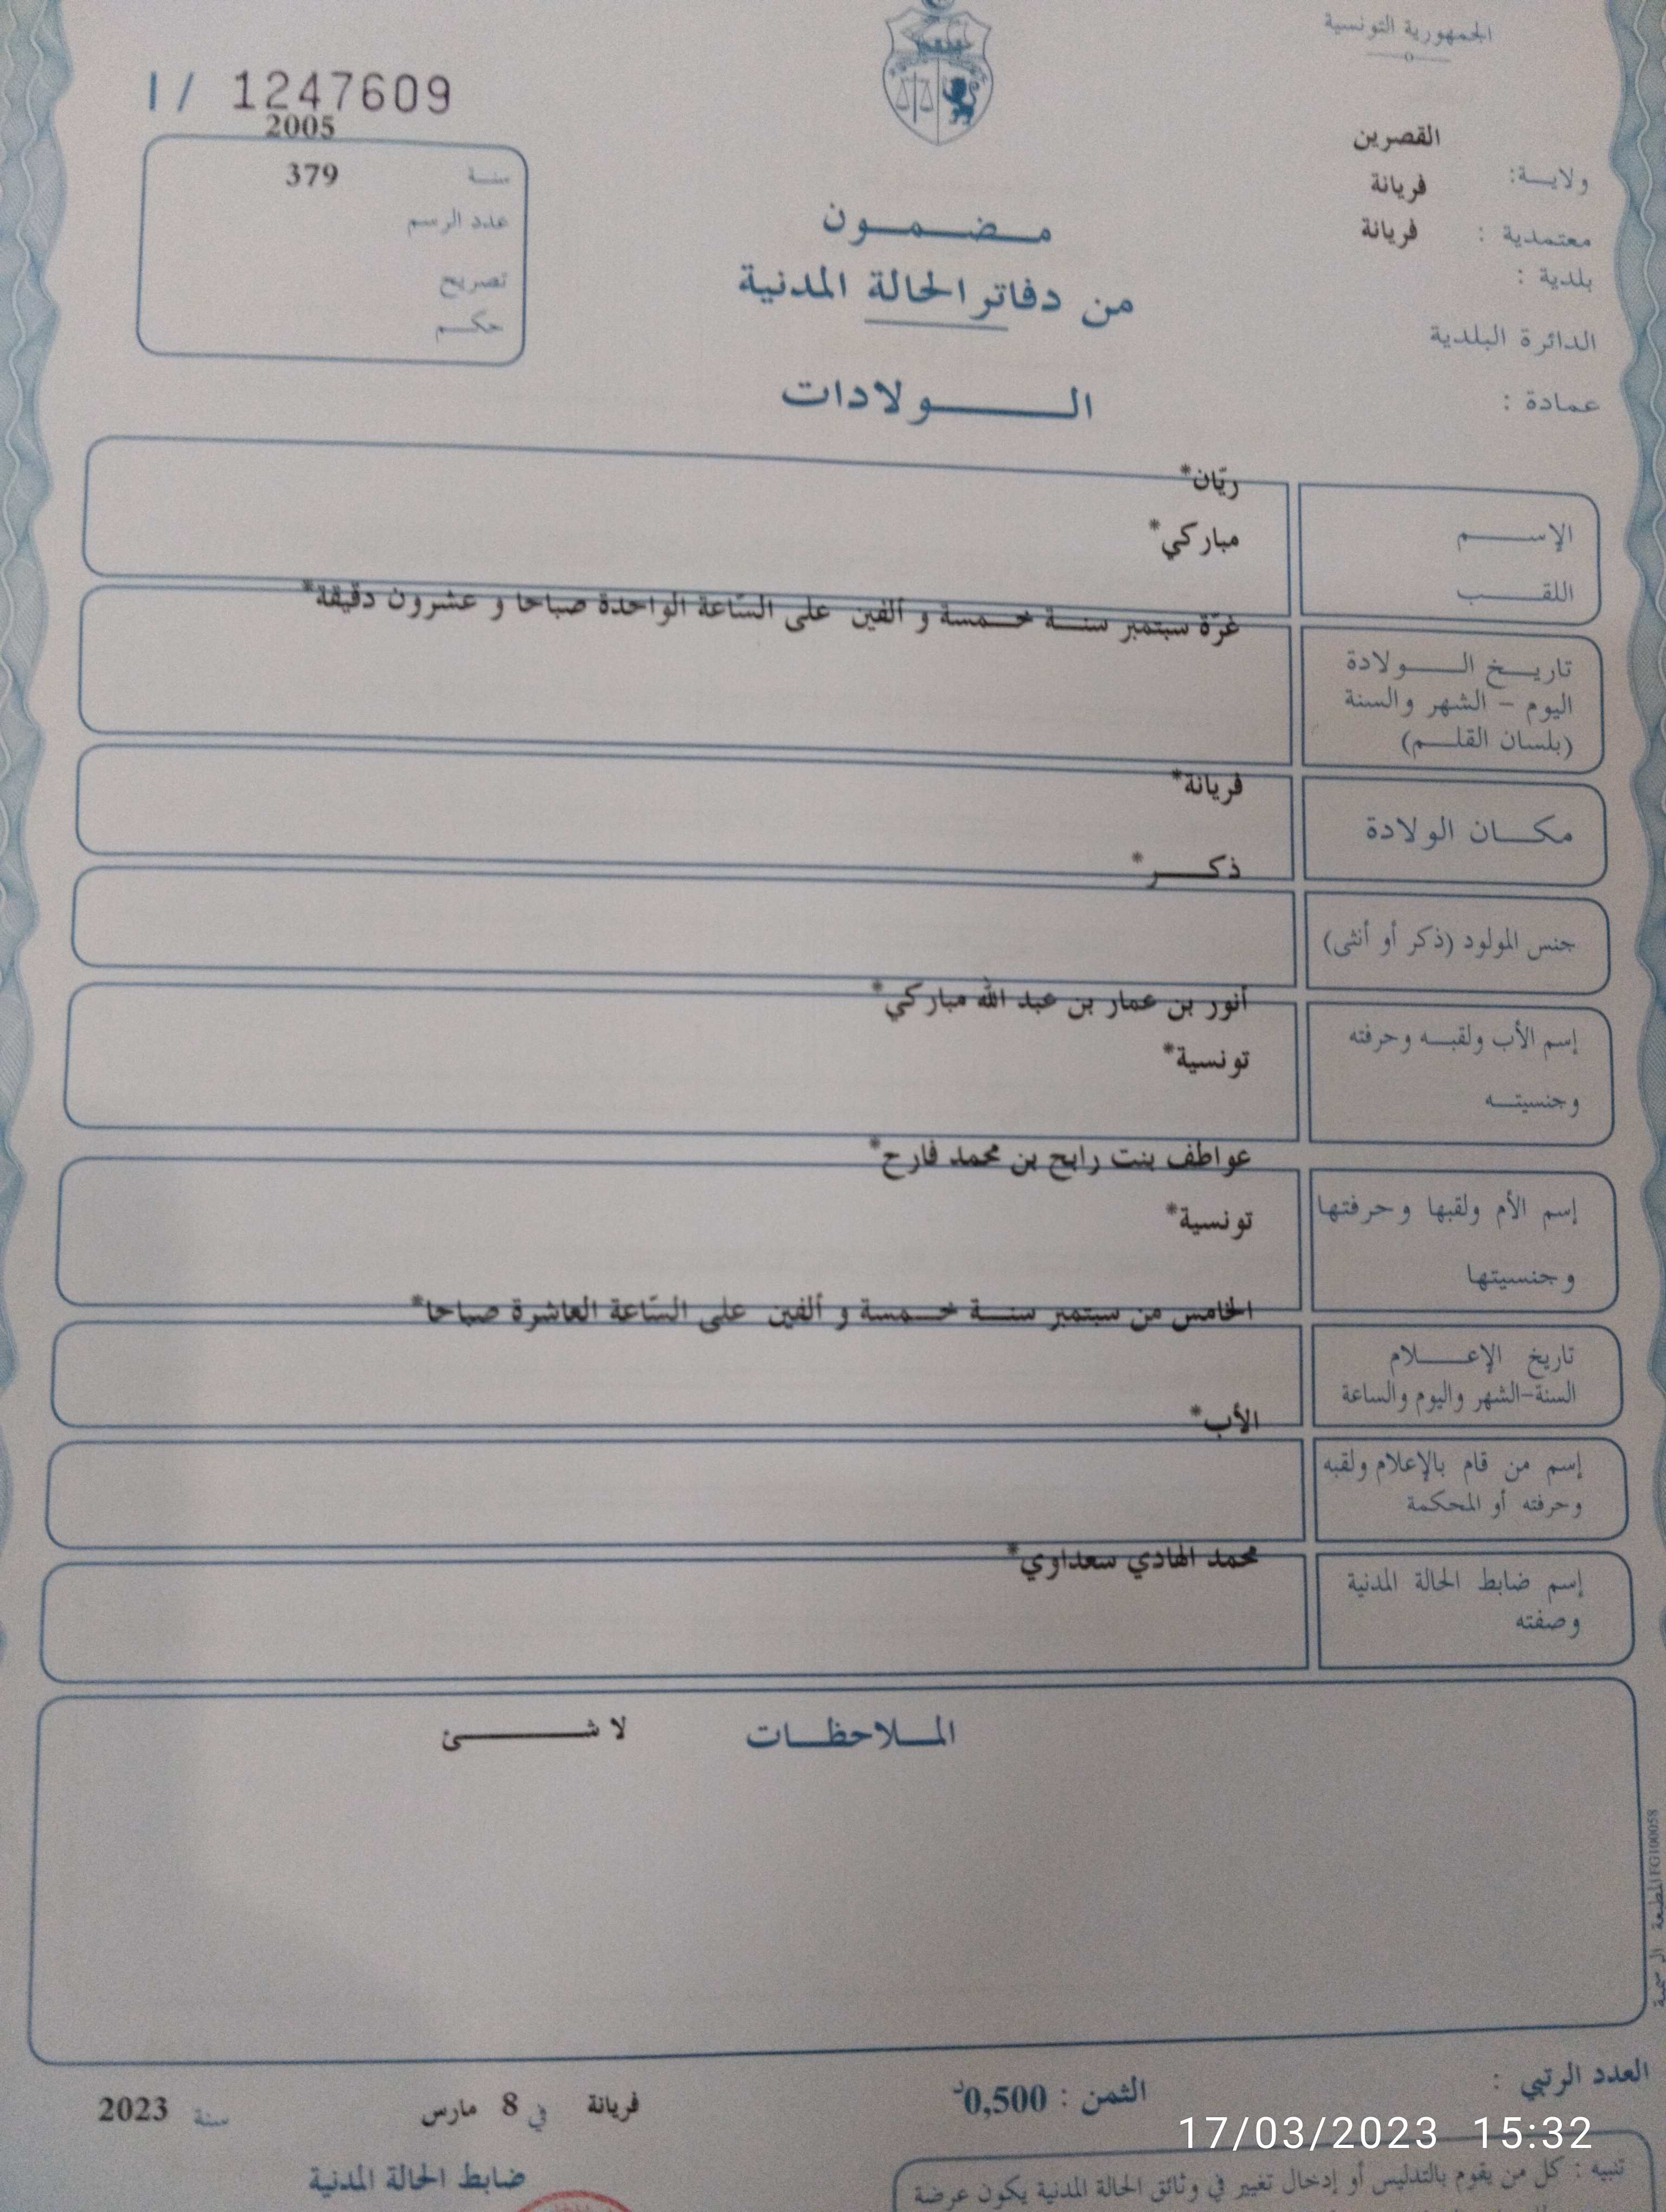 الجمهورية التونسية
القصرين
ولاية:
فريانة
معتمدية :
فريانة
بلدية :
الدائرة البلدية
عمادة :
I / 1247609
2005
سنة
379
عدد الرسم
تصريح
حكم
مضمون
من دفاتر الحالة المدنية
الولادات
ريّان*
الإسم
مباركي*
اللقب
غرّة سبتمبر سنة خمسة و ألفين على السّاعة الواحدة صباحا و عشرون دقيقة*
تاريخ الولادة
اليوم – الشهر والسنة
(بلسان القلم)
فريانة*
مكان الولادة
ذكر*
جنس المولود (ذكر أو أنثى)
أنور بن عمار بن عبد الله مباركي*
إسم الأب ولقبه وحرفته
تونسية*
وجنسيته
عواطف بنت رابح بن محمد فارح*
إسم الأم ولقبها وحرفتها
تونسية*
وجنسيتها
الخامس من سبتمبر سنة خمسة و ألفين على السّاعة العاشرة صباحا*
تاريخ الإعلام
السنة-الشهر واليوم والساعة
الأب*
إسم من قام بالإعلام ولقبه
وحرفته أو المحكمة
محمد الهادي سعداوي*
إسم ضابط الحالة المدنية
وصفته
الملاحظات
لا شئ
المطبعة الرسمية IFG100058
العدد الرتبي :
الثمن : 0,500د
فريانة في 8 مارس سنة 2023
17/03/2023 15:32
ضابط الحالة المدنية
تنبيه : كل من يقوم بالتدليس أو إدخال تغيير في وثائق الحالة المدنية يكون عرضة